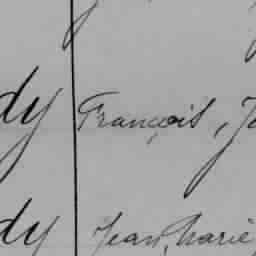 dy François, J
dy Jean, Marie